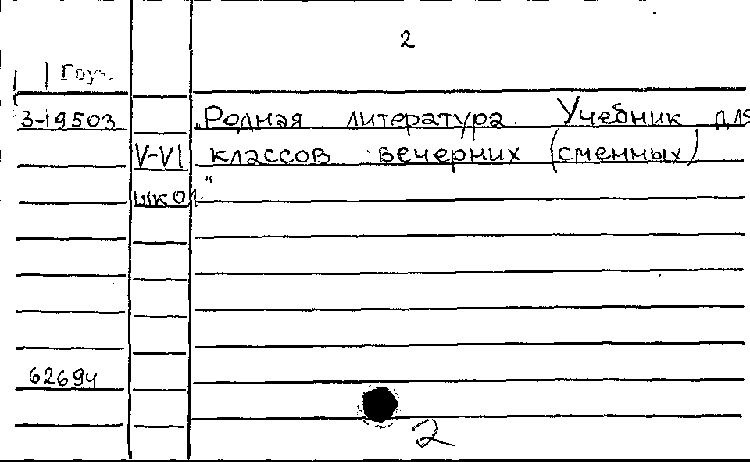 2
3-19503 „Родная литература. Учебник для
V-VI классов вечерних (сменных)
школ"
62694
2